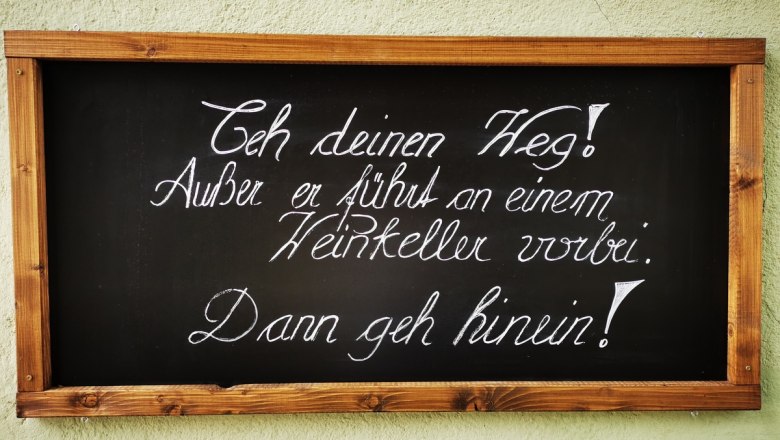 Geh deinen Weg!
Außer er führt an einem
Weinkeller vorbei.
Dann geh hinein!